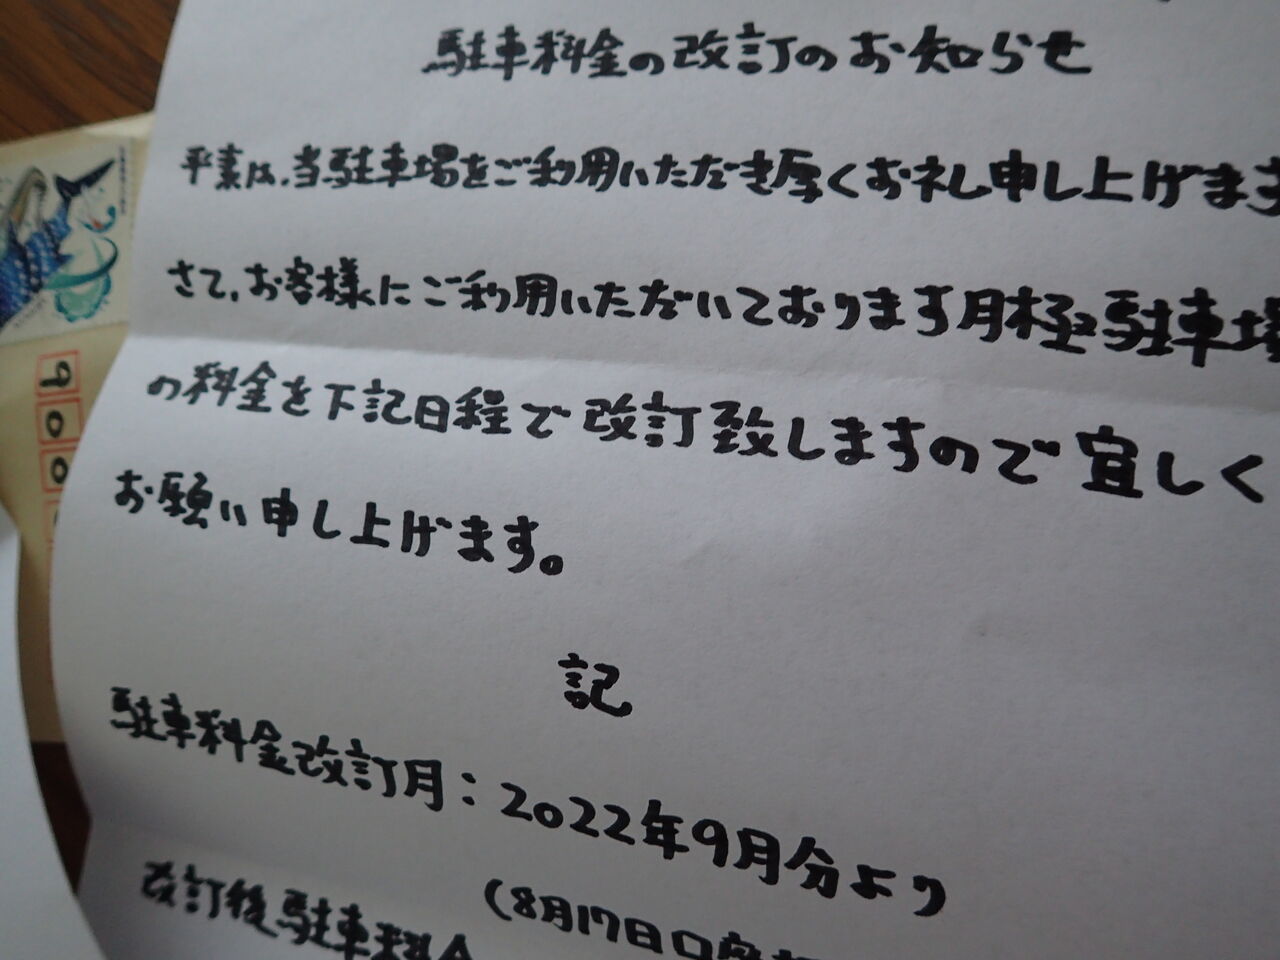 駐車料金の改訂のお知らせ
平素は、当駐車場をご利用いただき厚くお礼申し上げます
さて、お客様にご利用いただいております月極駐車場
の料金を下記日程で改訂致しますので宜しく
お願い申し上げます。
記
駐車料金改訂月：2022年9月分より
(8月17日口座
改訂後駐車料金
900